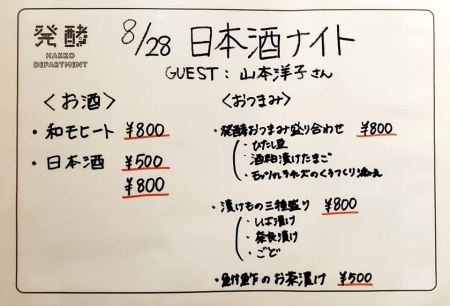 発酵
HAKKO
DEPARTMENT
8/28 日本酒ナイト
GUEST: 山本洋子さん
<お酒>
・和モヒート ¥800
・日本酒 ¥500
¥800
<おつまみ>
・発酵おつまみ盛り合わせ ¥800
・ひたし豆
・酒粕漬けたまご
・モッツァレラチーズのくろづくり添え
・漬けもの三種盛り ¥800
・しば漬け
・奈良漬け
・ごど
・鮒鮓のお茶漬け ¥500